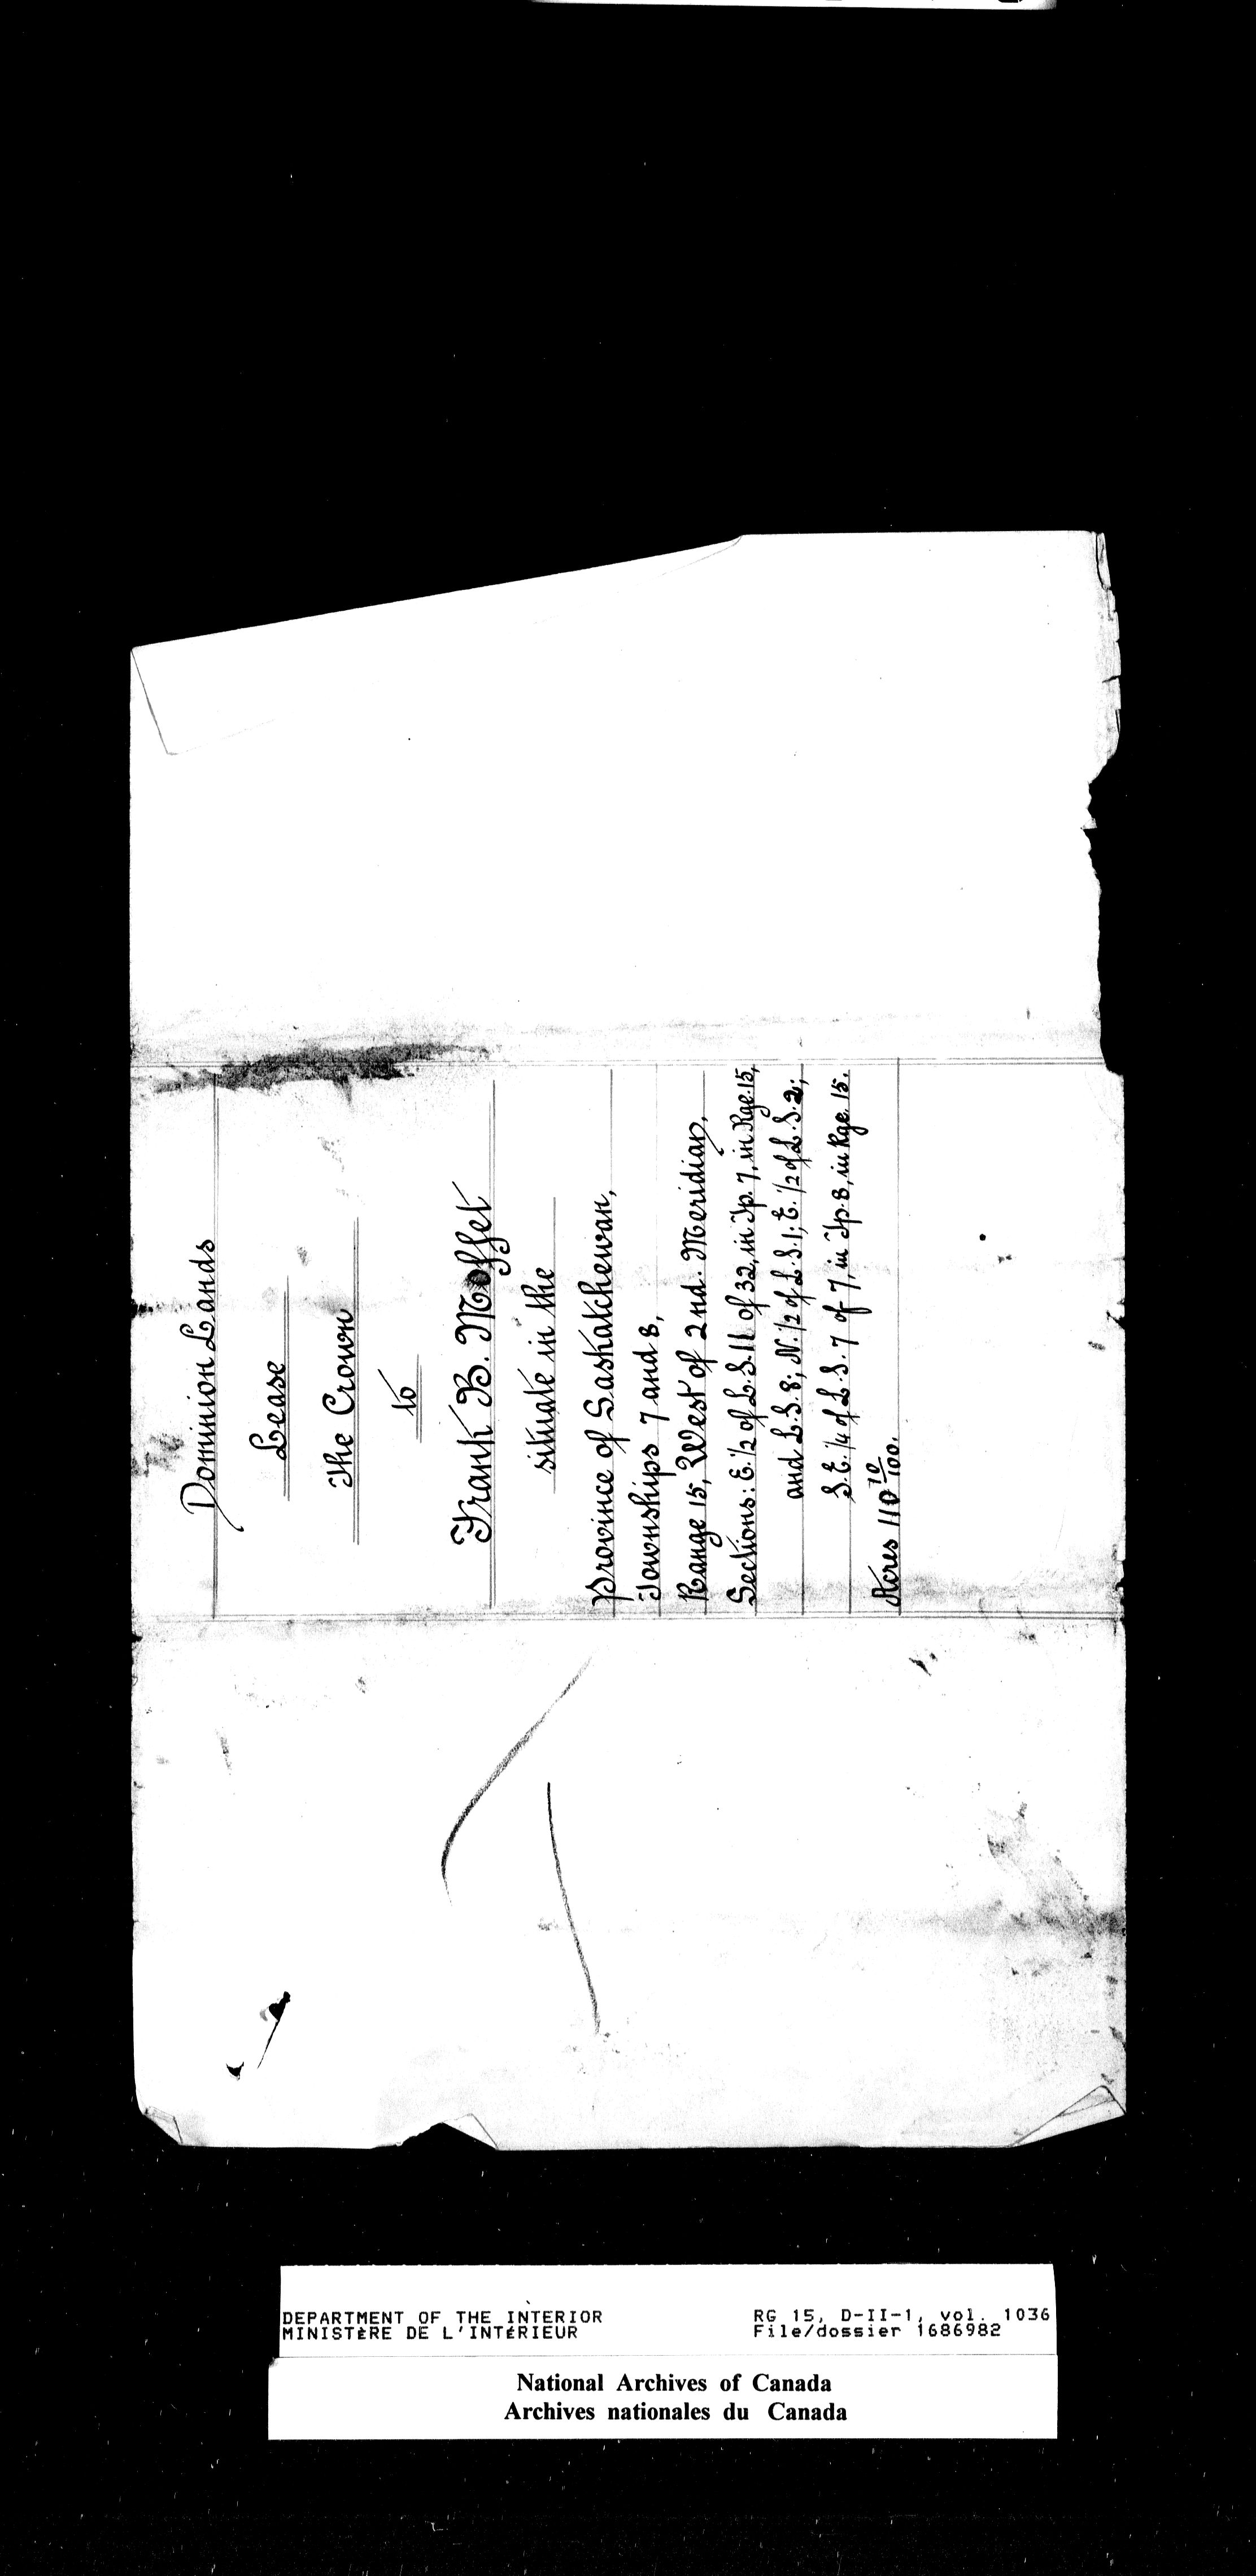 Dominion Lands
Lease
The Crown
to
Frank B. Moffet
situate in the
Province of Saskatchewan,
Townships 7 and 8,
Range 15, West of 2nd. Meridian,
Sections: E. 1/2 of L.S. 11 of 32, in Tp. 7, in Rge. 15,
and L.S. 8; N. 1/2 of L.S. 1; E. 1/2 of L.S. 2;
S.E. 1/4 of L.S. 7 of 7, in Tp. 8, in Rge. 15.
Acres 110 10/100.
DEPARTMENT OF THE INTERIOR
MINISTÈRE DE L'INTÉRIEUR
RG 15, D-II-1, vol. 1036
File/dossier 1686982
National Archives of Canada
Archives nationales du Canada